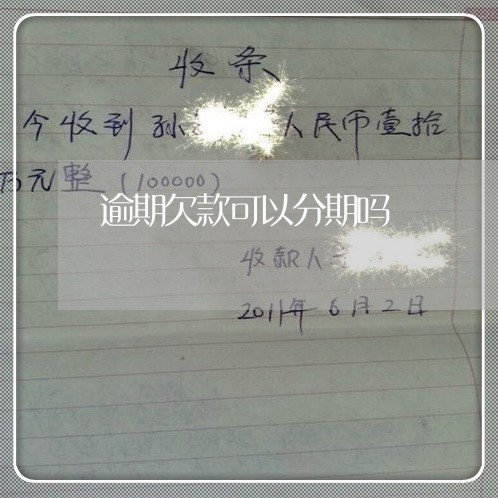 收条
今收到孙 人民币壹拾
万元整(100000)
逾期欠款可以分期吗
收款人
2011年6月2日